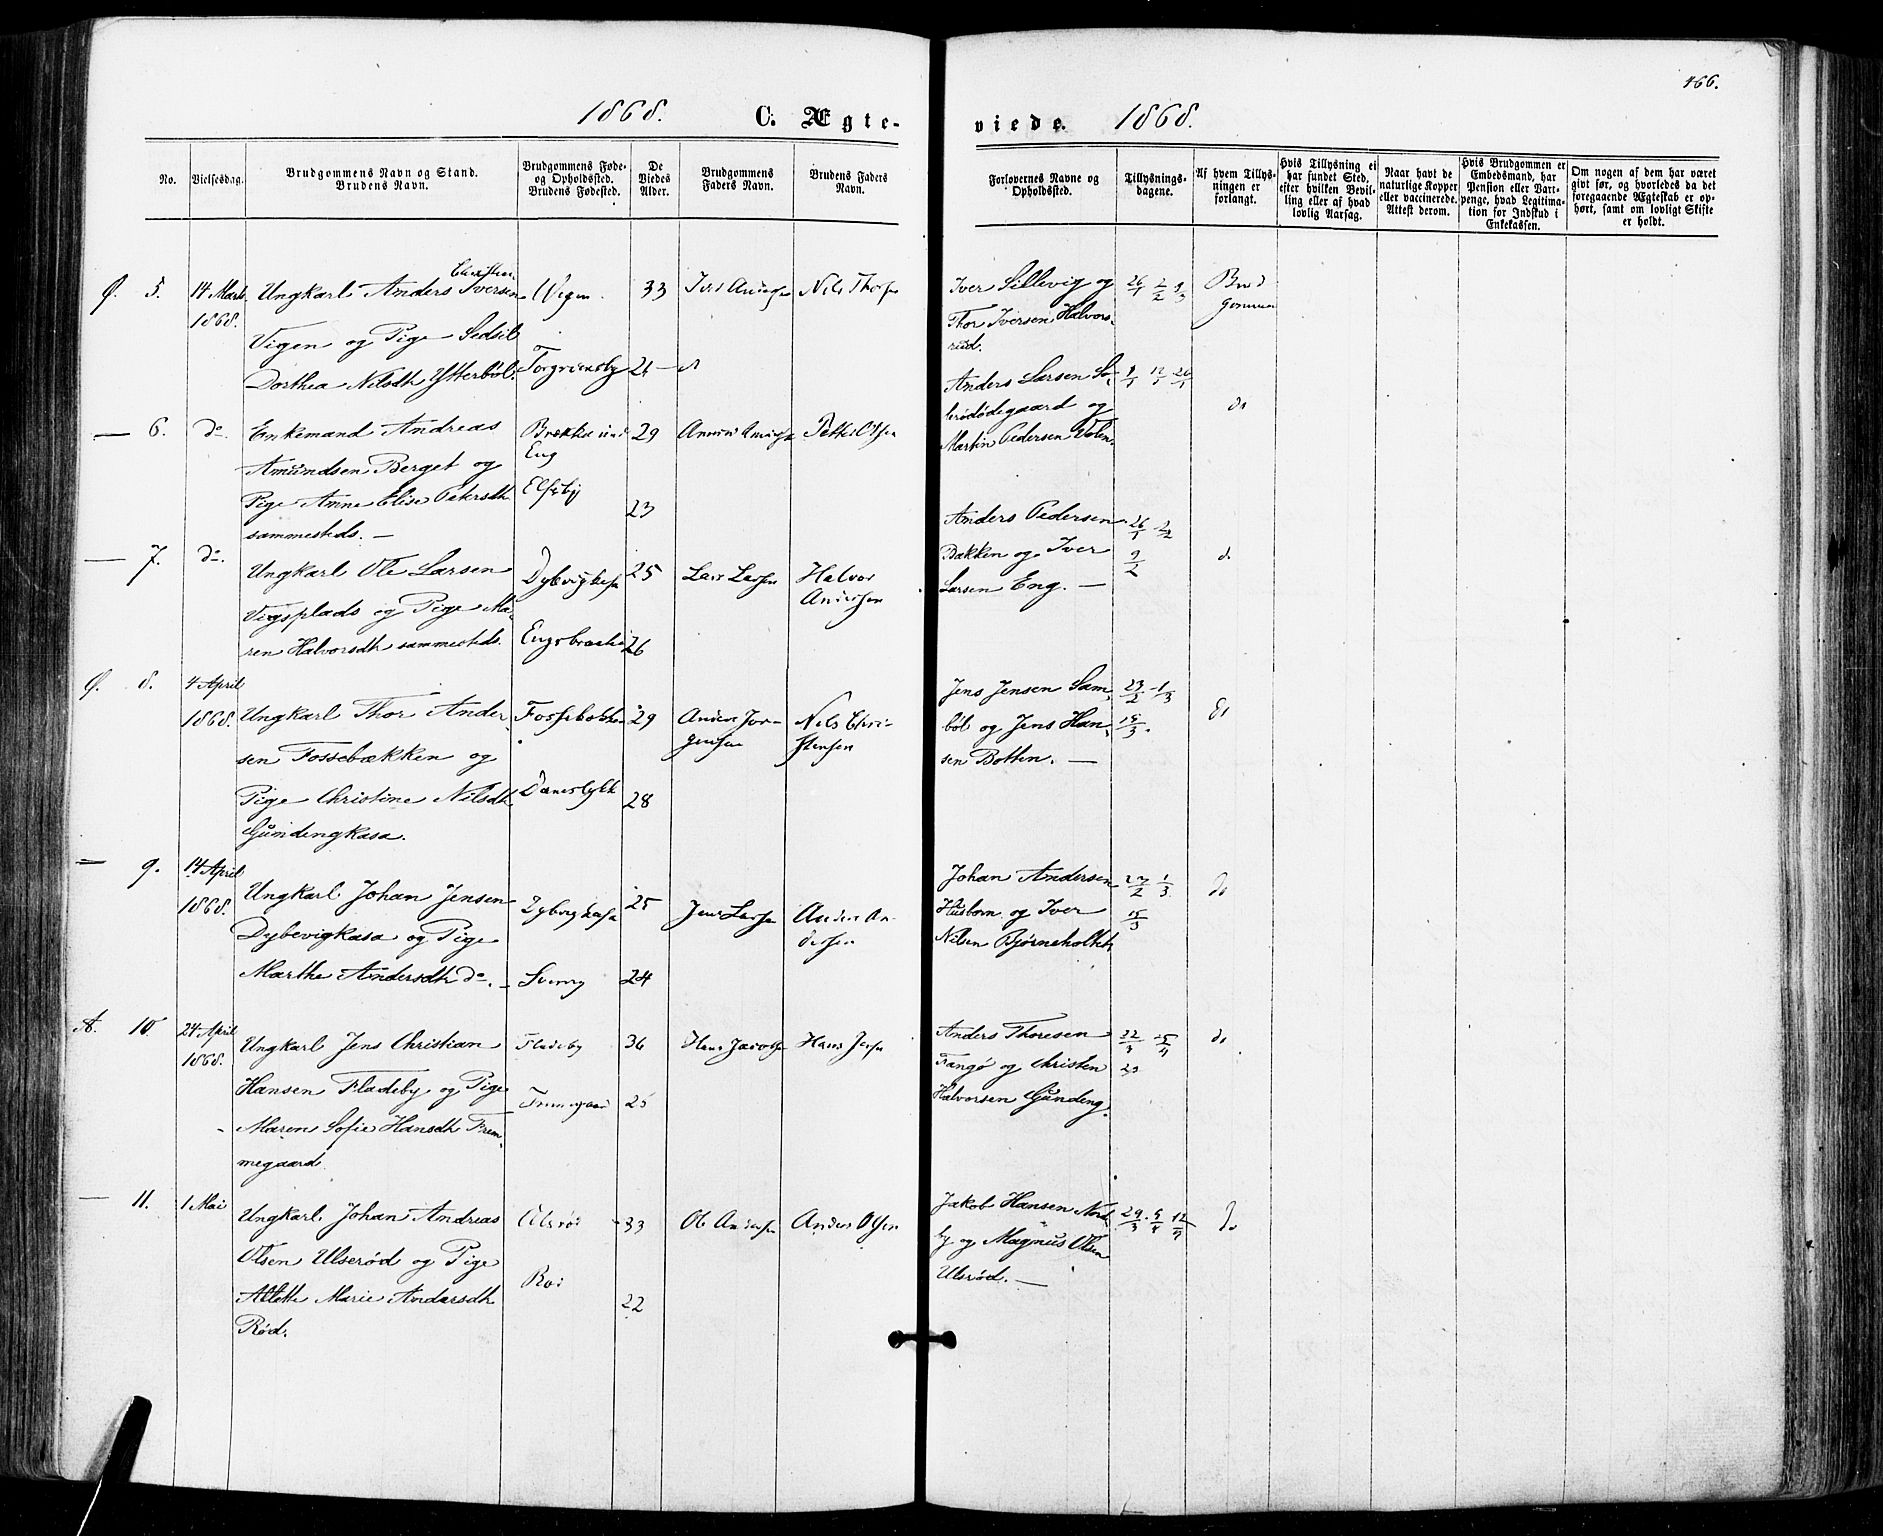 466.
1868. C. Ægte-
viede. 1868.
No.
Vielsesdag.
Brudgommens Navn og Stand.
Brudens Navn.
Brudgommens Føde-
og Opholdssted.
Brudens Fødested.
De
Viedes
Alder.
Brudgommens
Faders Navn.
Brudens Faders
Navn.
Forlovernes Navne og
Opholdssted.
Tillysnings-
dagene.
Af hvem Tillys-
ningen er
forlangt.
Hvis Tillysning ei
har fundet Sted,
efter hvilken Bevil-
ling eller af hvad
lovlig Aarsag.
Naar havt de
naturlige Kopper
eller vaccinerede.
Attest derom.
Hvis Brudgommen er
Embedsmand, har
Pension eller Vart-
penge, hvad Legitima-
tion for Indskud i
Enkekassen.
Om nogen af dem har været
givt før, og hvorledes da det
foregaaende Ægteskab er op-
hørt, samt om lovligt Skifte
er holdt.
Ø. 5.
14 Marts
1868.
Christen
Ungkarl Anders Iversen
Vigen og Pige Sedsil
Dorthea Nilsdtr Ytterbøl.
Vigen
33
Nils Thorsen
26
Iver Sillevig og
Thor Iversen Halvors-
rud.
26/1 2/2 9/2
Brud
gommen
— 6.
do.
Enkemand Andreas
Amundsen Berget og
Pige Anne Elise Petersdtr
sammesteds. —
Eng
Elfsby
29
23
Petter Olsen
Anders Larsen
ødegaard og
Martin Pedersen
do
— 7.
do.
Ungkarl Ole Larsen
Vigsplads og Pige Ma-
ren Halvorsdtr sammesteds.
25
26
Lars Larsen
Halvor
Andersen
Anders Pedersen
Bakken og Iver
Larsen Eng. —
26/1 2/2
9/2
do
Ø. 8.
4 April
1868.
Ungkarl Thor Ander-
sen Fossebækken og
Pige Christine Nilsdtr
Gundengkasa.
Fossebækken
29
28
Anders Jør-
gensen
Nils Chri-
stensen
Jens Jensen Sam-
bøl og Jens Han-
sen Botten. —
23/2 1/3
15/3.
do
— 9.
14 April
1868.
Ungkarl Johan Jensen
Dybevigkasa og Pige
Marthe Andersdtr do. —
25
24
Jens Larsen
Anders An-
dersen
Johan Andersen
Husborn og Iver
Nilsen Bjørneholtet.
1/3
15/3
do
A. 10
24 April
1868.
Ungkarl Jens Christian
Hansen Fladeby og Pige
Maren Sofie Hansdtr Frem-
megaard.
Fladeby
36
25
Hans Jacobsen
Hans
Anders Thoresen
Tangø og Christen
Halvorsen Gundeng.
22/3
do
— 11.
1 Mai
Ungkarl Johan Andreas
Olsen Ulserød og Pige
Alette Marie Andersdtr
Rød.
Ulsrød
Rød
33
22
Ole Andersen
Anders Olsen
Jakob Hansen Nord-
by og Magnus Olsen
Ulsrød. —
29/3 5/4 12/4
do